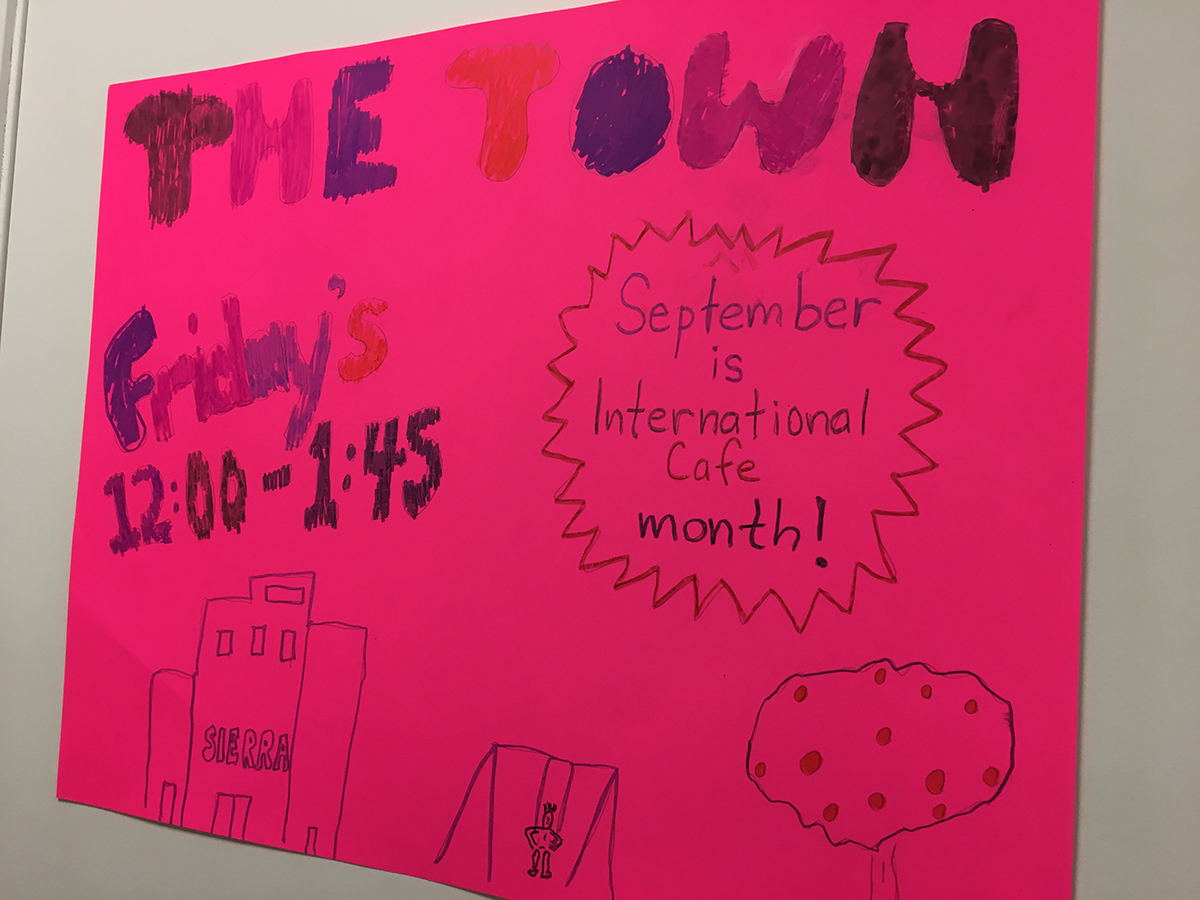 THE TOWN
Friday's
12:00-1:45
September
is
International
Cafe
month!
SIERRA